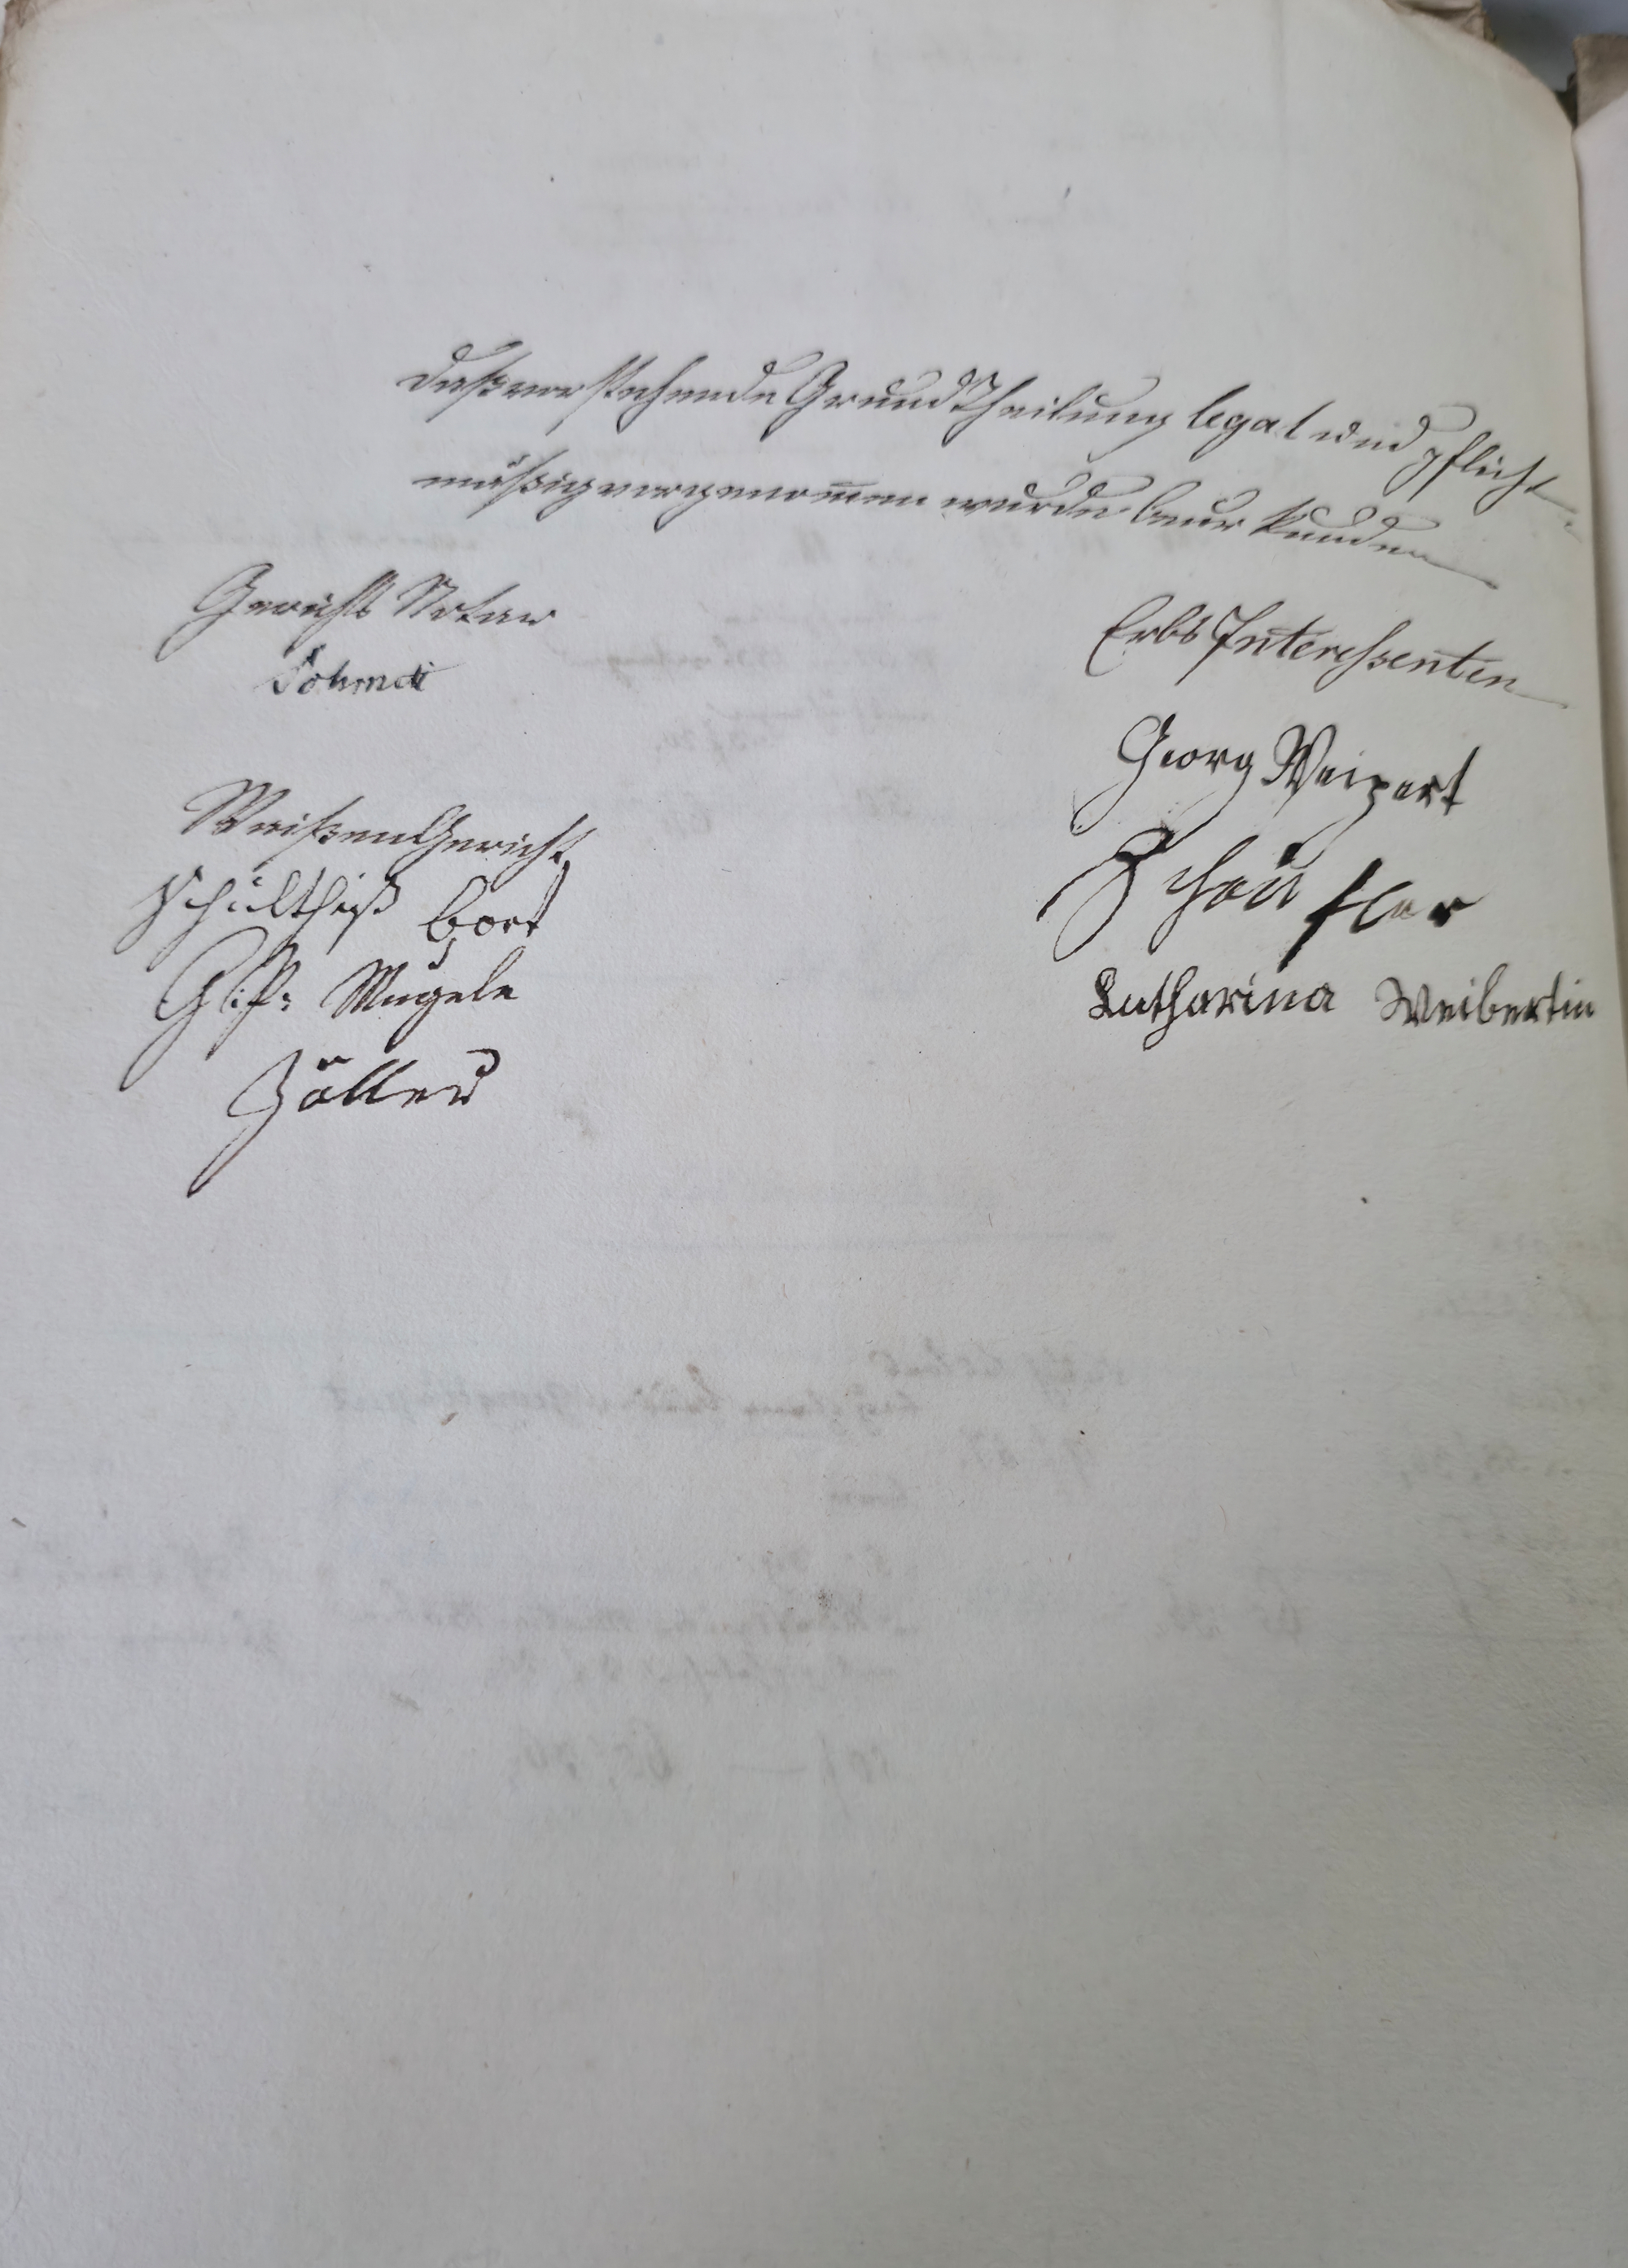 Daß vorstehende Grund Theilung legal und pflicht-
mäßig vorgenomen wurde beurkunden
Gerichts Notar
Schmid
Waißen Gericht
Schultheiß Bort
Mugele
Zoller
Erbs Interessenten
Georg Weipert
Schäufler
Katharina Weibertin